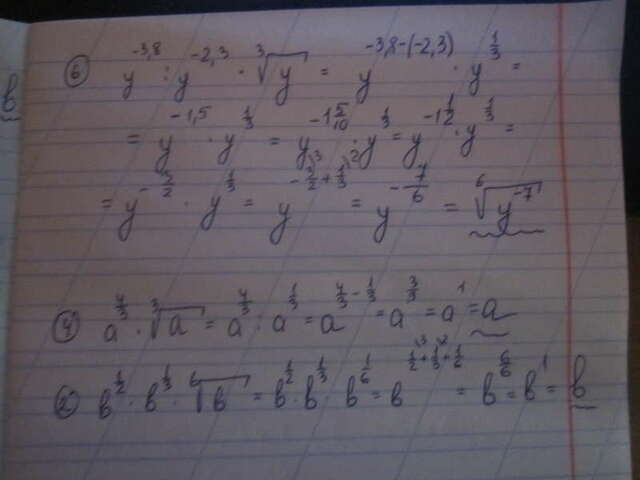 ⑥ y^{-3,8} : y^{-2,3} · ∛y = y^{-3,8-(-2,3)} · y^{1/3} =
= y^{-1,5} · y^{1/3} = y^{-1 5/10} · y^{1/3} = y^{-1 1/2} · y^{1/3} =
= y^{-3/2} · y^{1/3} = y^{-3/2 + 1/3} = y^{-7/6} = ⁶√(y^{-7})
④ a^{4/3} : ∛a = a^{4/3} : a^{1/3} = a^{4/3 - 1/3} = a^{3/3} = a^1 = a
② b^{1/2} · b^{1/3} · ⁶√b = b^{1/2} · b^{1/3} · b^{1/6} = b^{1/2 + 1/3 + 1/6} = b^{6/6} = b^1 = b